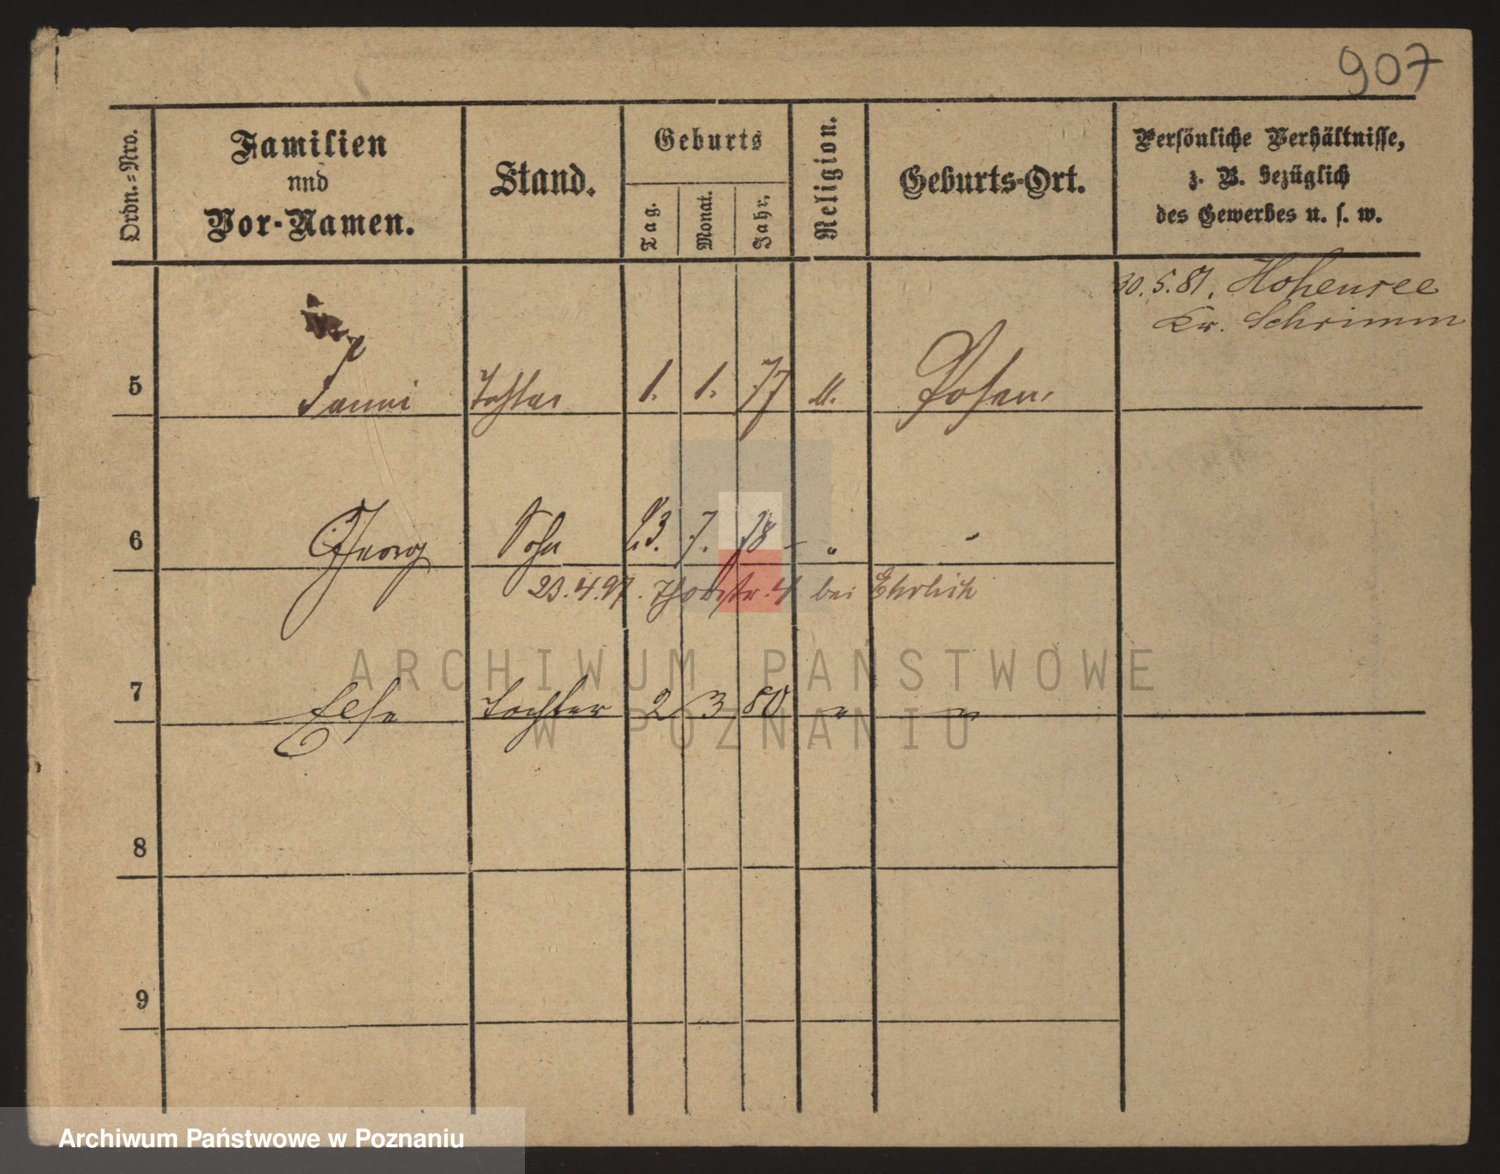 907
Ordn.-Nro.
Familien
und
Vor-Namen.
Stand.
Geburts
Tag.
Monat.
Jahr.
Religion.
Geburts-Ort.
Persönliche Verhältnisse,
z. B. bezüglich
des Gewerbes u. s. w.
30.5.81. Hohensee
Kr. Schrimm
5 Fanni Tochter 1. 1. 77 Posen
6 Georg Sohn 23. 7. 78 " "
23.4.97. bei Ehrlich
7 Else Tochter 2 3 80 " "
8
9
ARCHIWUM PAŃSTWOWE
W POZNANIU
Archiwum Państwowe w Poznaniu